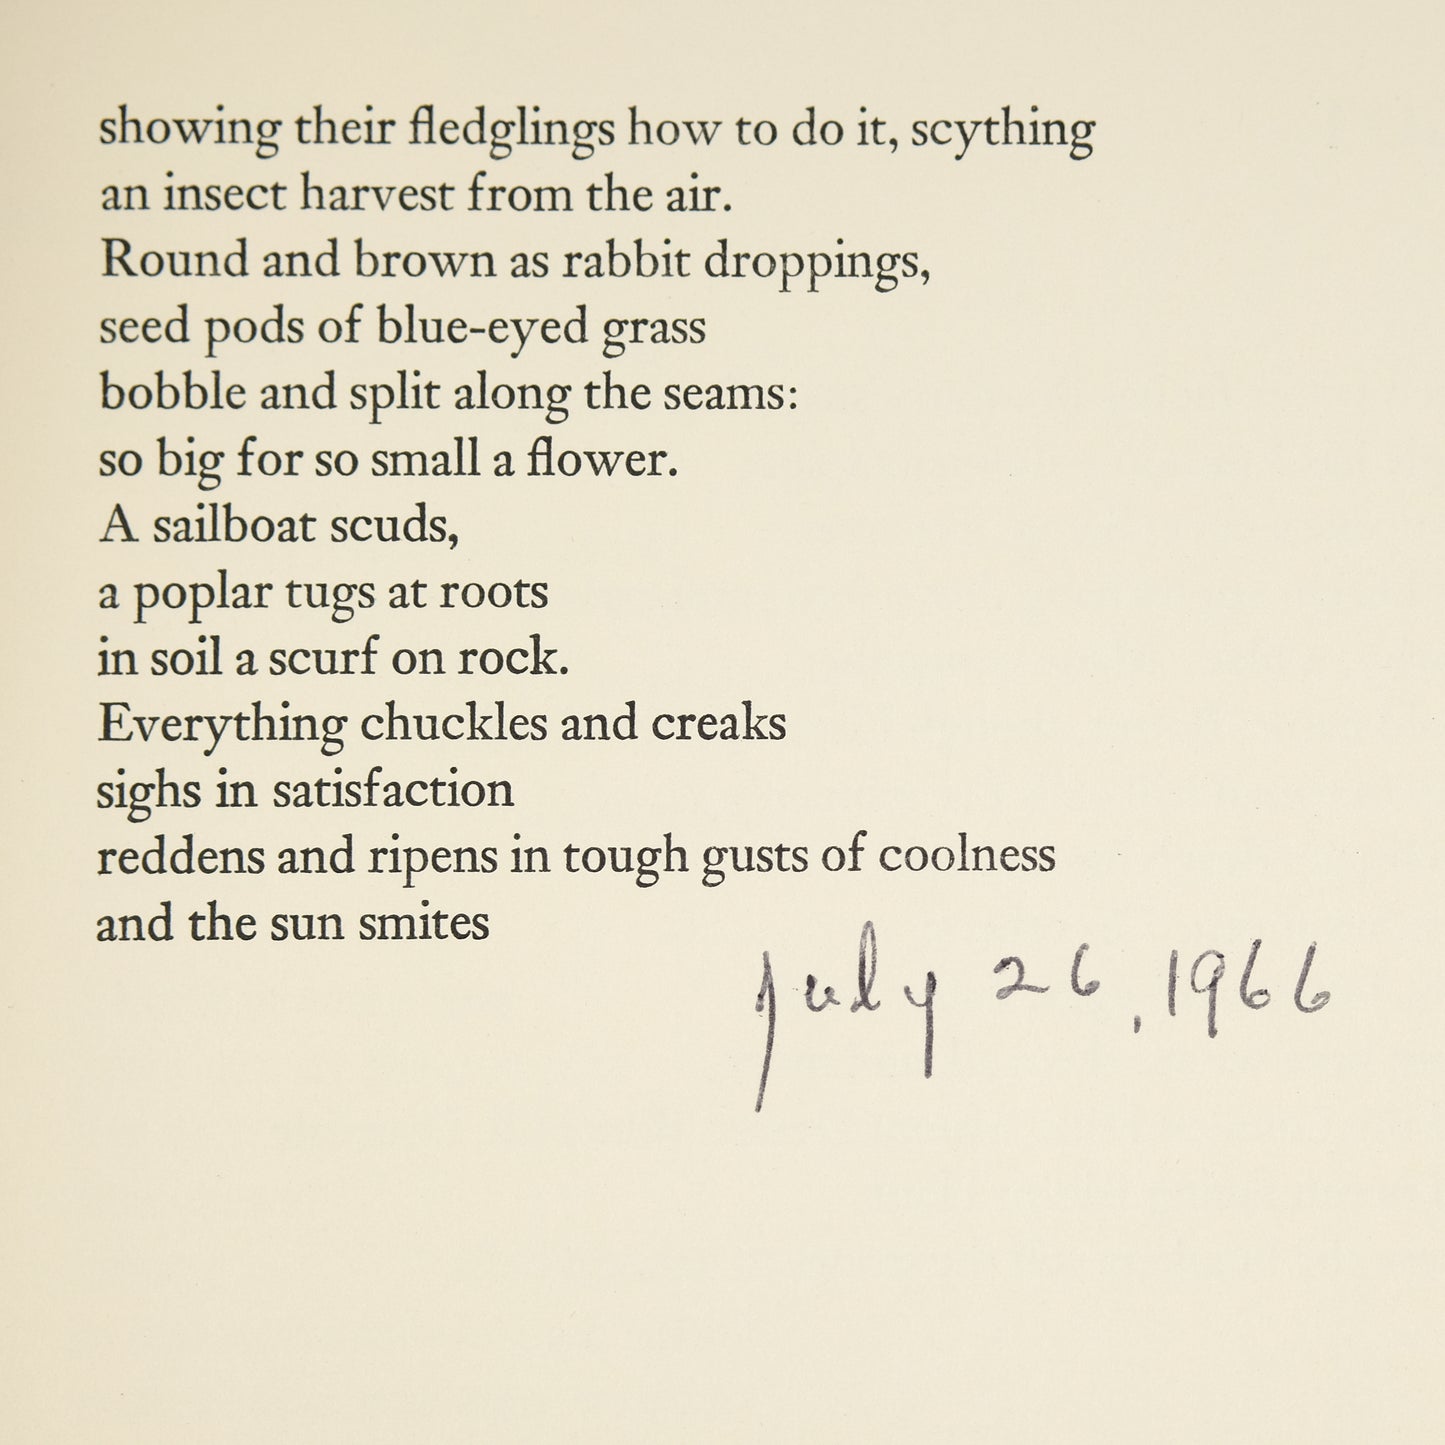 showing their fledglings how to do it, scything
an insect harvest from the air.
Round and brown as rabbit droppings,
seed pods of blue-eyed grass
bobble and split along the seams:
so big for so small a flower.
A sailboat scuds,
a poplar tugs at roots
in soil a scurf on rock.
Everything chuckles and creaks
sighs in satisfaction
reddens and ripens in tough gusts of coolness
and the sun smites
July 26, 1966